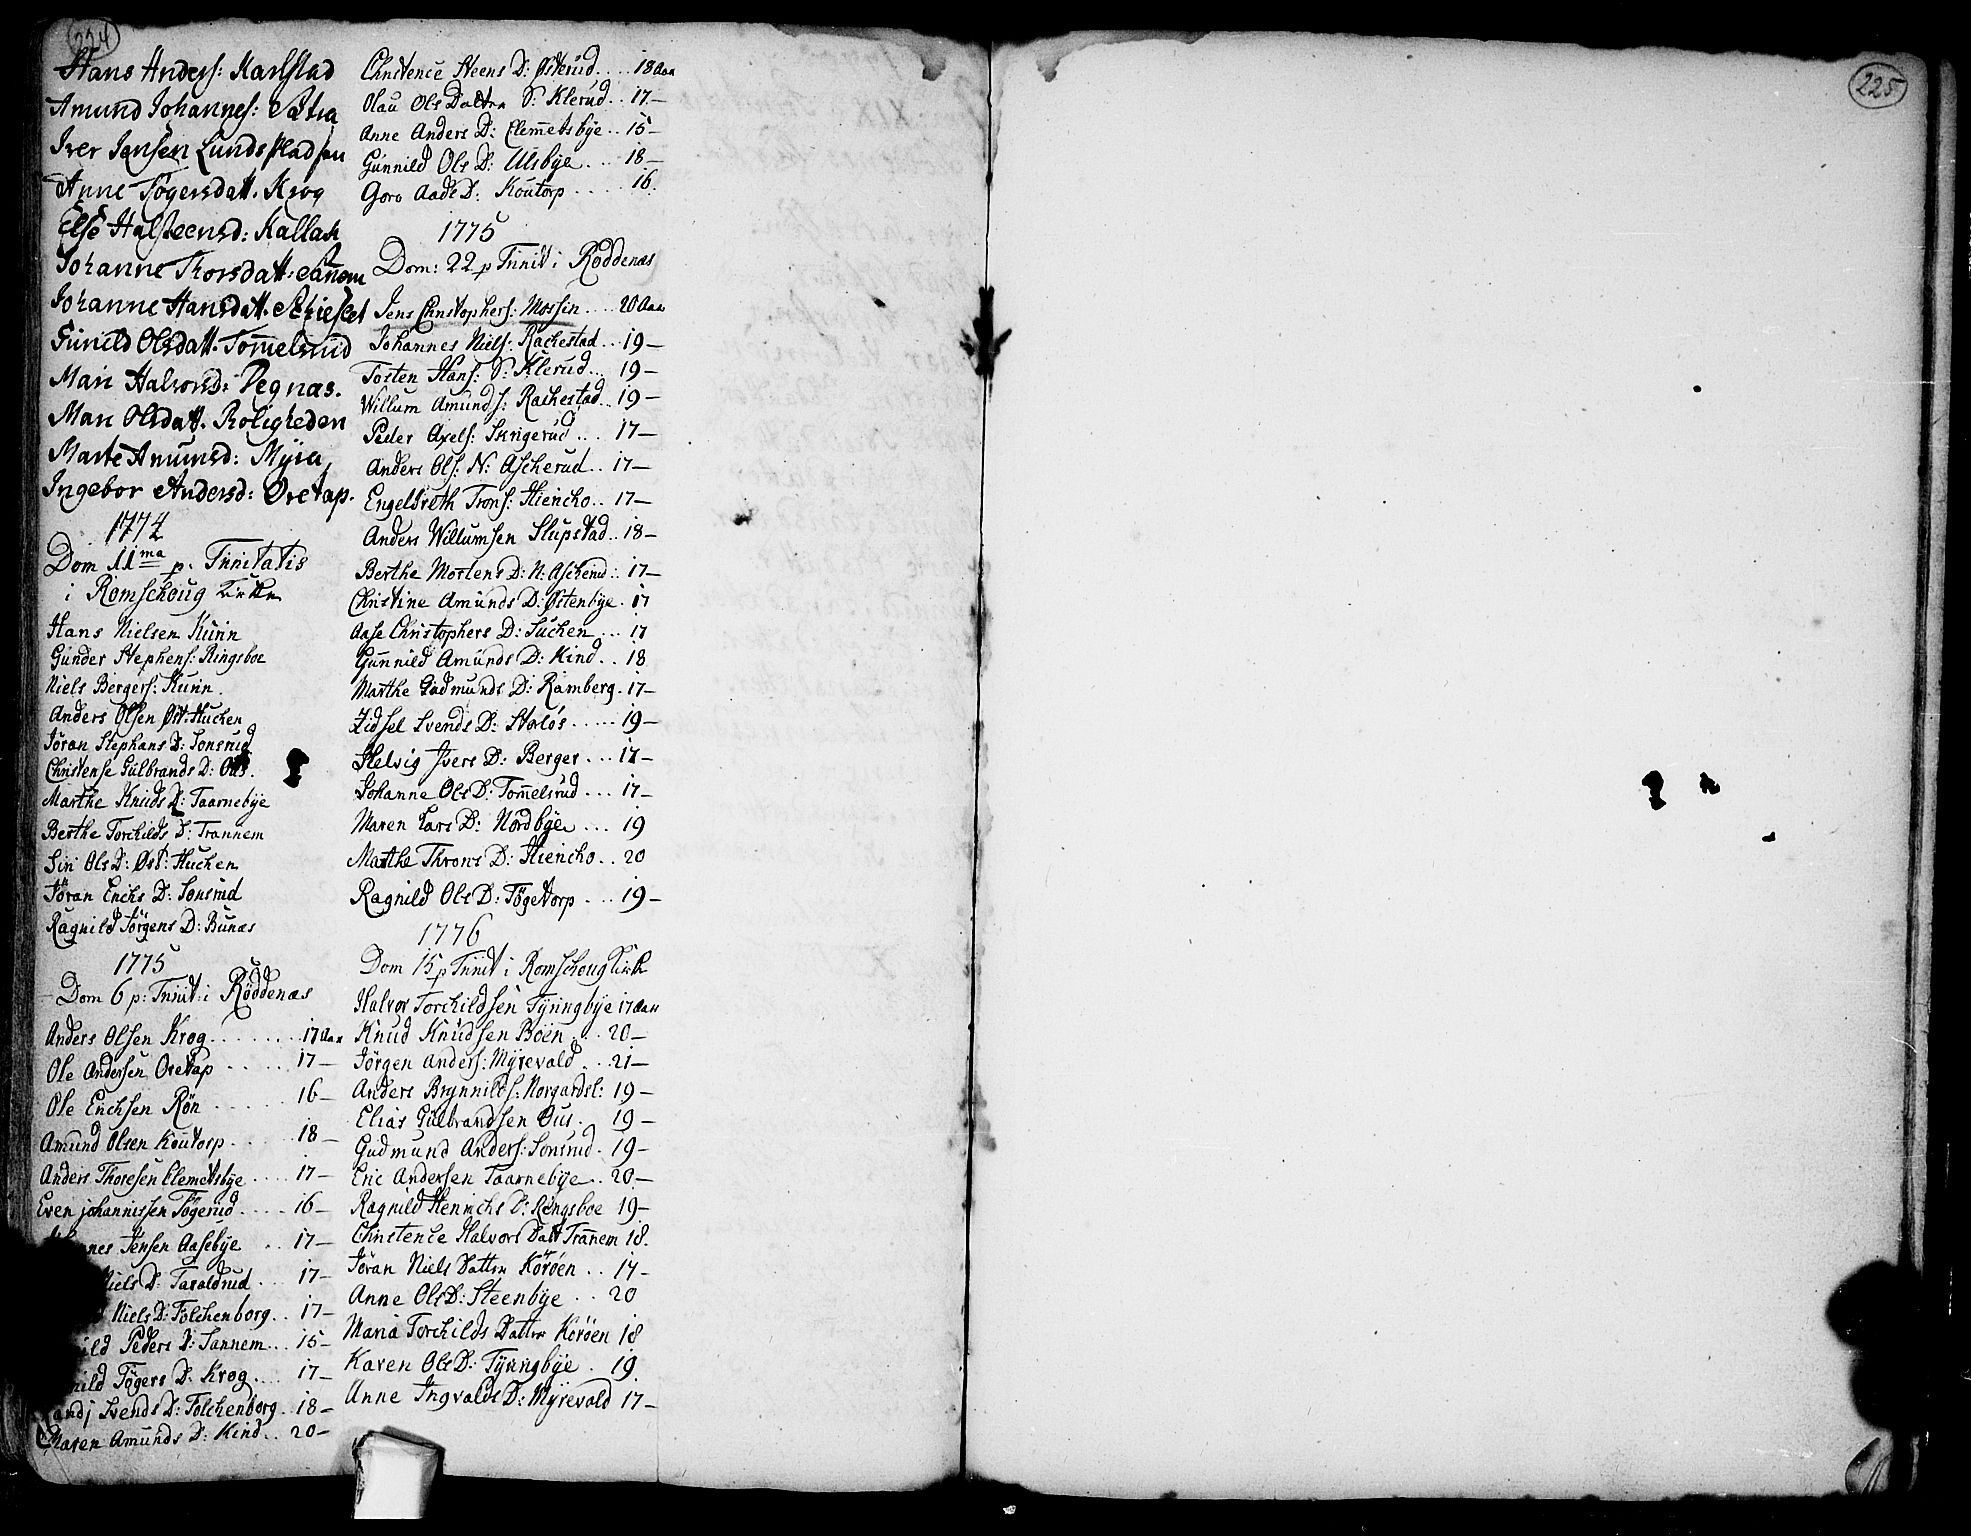 224
Hans Anders: Karlstad
Amund Johannes: Sætra
Iver Jensen Lunds Pladsen
Anne Togersdatt. Krog
Else Halsteensd: Kallak
Johanne Thorsdatt: Sanem
Johanne Hansdatt.
Gunild Olsdatt. Tom̄elsrud
Mari Halvorsd: Vegnæs.
Mari Olsdatt. Roligheden
Marte Amunsd: Myra
Ingebor Andersd: Oretap.
1774
Dom 11ma p. Trinitatis
i Romschoug Kirke
Hans Nielsen Kurin
Gunder Stephens: Ringsboe
Niels Bergers: Kurin.
Anders Olsen Øst: Huchen
Jöran Stephans D: Sonsrud
Christense Gulbrands D: Ous.
Marthe Knuds D: Taarnebye
Berthe Torchilds D: Trannem
Siri Ols D: Øst: Huchen
Jöran Erichs D: Sonsrud
Ragnild Jörgens D: Bunæs
1775
Dom 6 p: Trinit: i Röddenæs
Anders Olsen Krog........17 Aar
Ole Andersen Oretap......17—
Ole Erichsen Rön......16—
Amund Olsen Koutorp......18—
Anders Thoresen Clemetsbye....17—
Even johannissen Tögerud....16—
Jensen Aasebye..17—
Niels D: Taraldrud...17—
Niels D: Folchenborg..17—
Peders D: Sannem...15—
Tögers D: Krog....17—
Svends D: Folchenborg.18—
Maren Amunds D: Kind..20—
Christence Steens D: Østerud....18 Aar
Olau Ols Datter S: Klerud..17.—
Anne Anders D: Clemetsbye..15—
Gunnild Ols D: Ulsbye...18—
Goro Aads D: Koutorp.....16.
1775
Dom: 22 p Trinit i Röddenæs
Jens Christophers: Mossin....20 Aar
Johannes Niels: Rachestad...19—
Tosten Hans: S: Klerud...19—
Willum Amunds: Rachestad..19—
Peder Axels: Skrigerud...17—
Anders Ols: N: Ascherud..17—
Engelbreth Trons: Hiencho..17—
Anders Willumsen Slupstad..18—
Berthe Mortens D: N: Ascherud:.17—
Christine Amunds D: Østenbye.17
Aase Christophers D: Suchen...17
Gunnild Amunds D: Kind..18
Marthe Gudmunds D: Ramberg.17—
Zidsel Svends D: Storlös.....19—
Helvig Ivers D: Berger...17—
Johanne Ols D: Tom̄elsrud...17—
Maren Lars D: Nordbye...19
Marthe Throns D: Hiencho..20
Ragnild Ols D: Tögetorp...19—
1776
Dom 15 p Trinit i Romschoug Kirke
Halvor Torchildsen Tyringbye 17 Aar
Knud Knudsen Boen...20—
Jörgen Anders: Myrevald...21—
Anders Brynnilds: Norgardsl: 19—
Elias Gulbrandsen Ous.19—
Gudmund Anders: Sonsrud.19—
Eric Andersen Taarnebye..20—
Ragnild Henrichs D: Ringsboe 19—
Christence Halvors Datt Tranem 18.
Jöran Niels Datter Koröen..17—
Anne Ols D: Steenbye..20
Maria Torchilds Datter Koröen 18
Karen Ols D: Tyringbye.19.
Anne Ingvalds D: Myrevald 17—
225